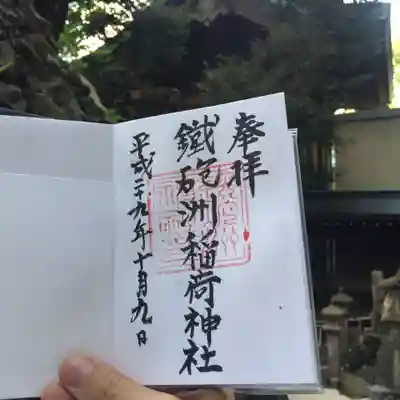 奉拝
鐵砲洲稲荷神社
平成二九年十月九日